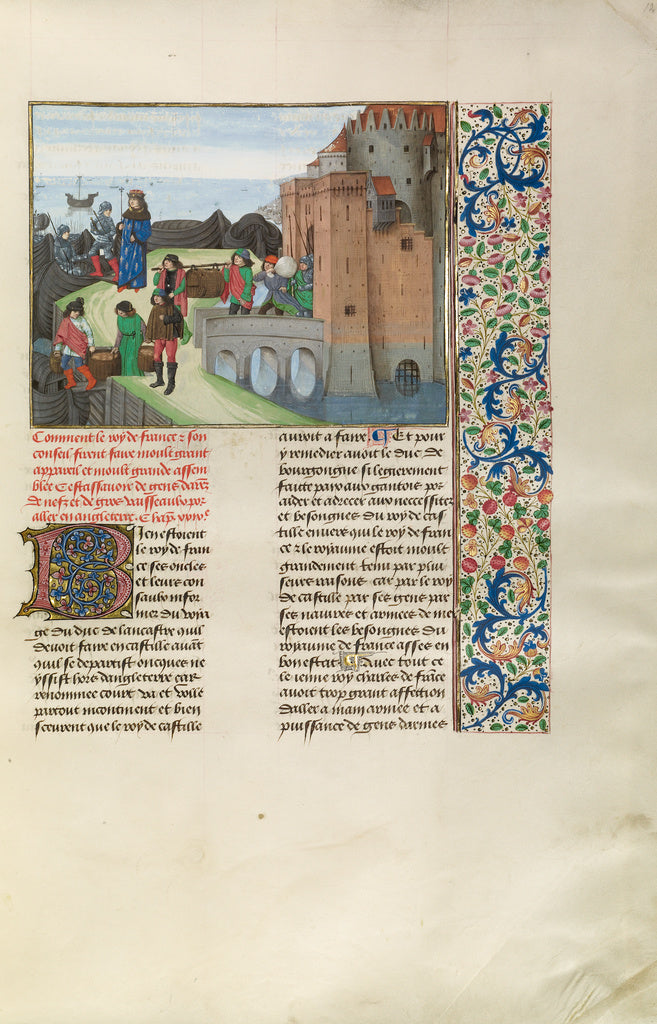 Comment le roy de france & son
conseil firent faire moult grant
appareil et moult grande assem
blee Cestassavoir de gens darmes
de nefz et de gros vaisseaulx por
aller en angleterre. C hap. xxiiij.e
Bien estoient
le roy de fran
ce ses oncles
et leurs con
saulx infor
mez du voia
ge du duc de lancastre quil
devoit faire en castille avant
quil se departist oncques ne
yssist hors dangleterre car
renommee court va et volle
partout incontinent et bien
scevent que le roy de castille
auroit a faire Et pour
y remedier avoit le duc de
bourgongne si legierement
faitte paix aux gantois por
aider et adrecer aux necessitez
et besongnes du roy de cas
tille envers qui le roy de fran
ce & le royaume estoit moult
grandement tenu par plui
seurs raisons car par le roy
de castille par ses gens par
ses navires et armees de mer
estoient les besongnes du
royaume de france assez en
bon estat Avec tout ce
le jeune roy charles de france
avoit trop grant affection
daller a main armee et a
puissance de gens darmes